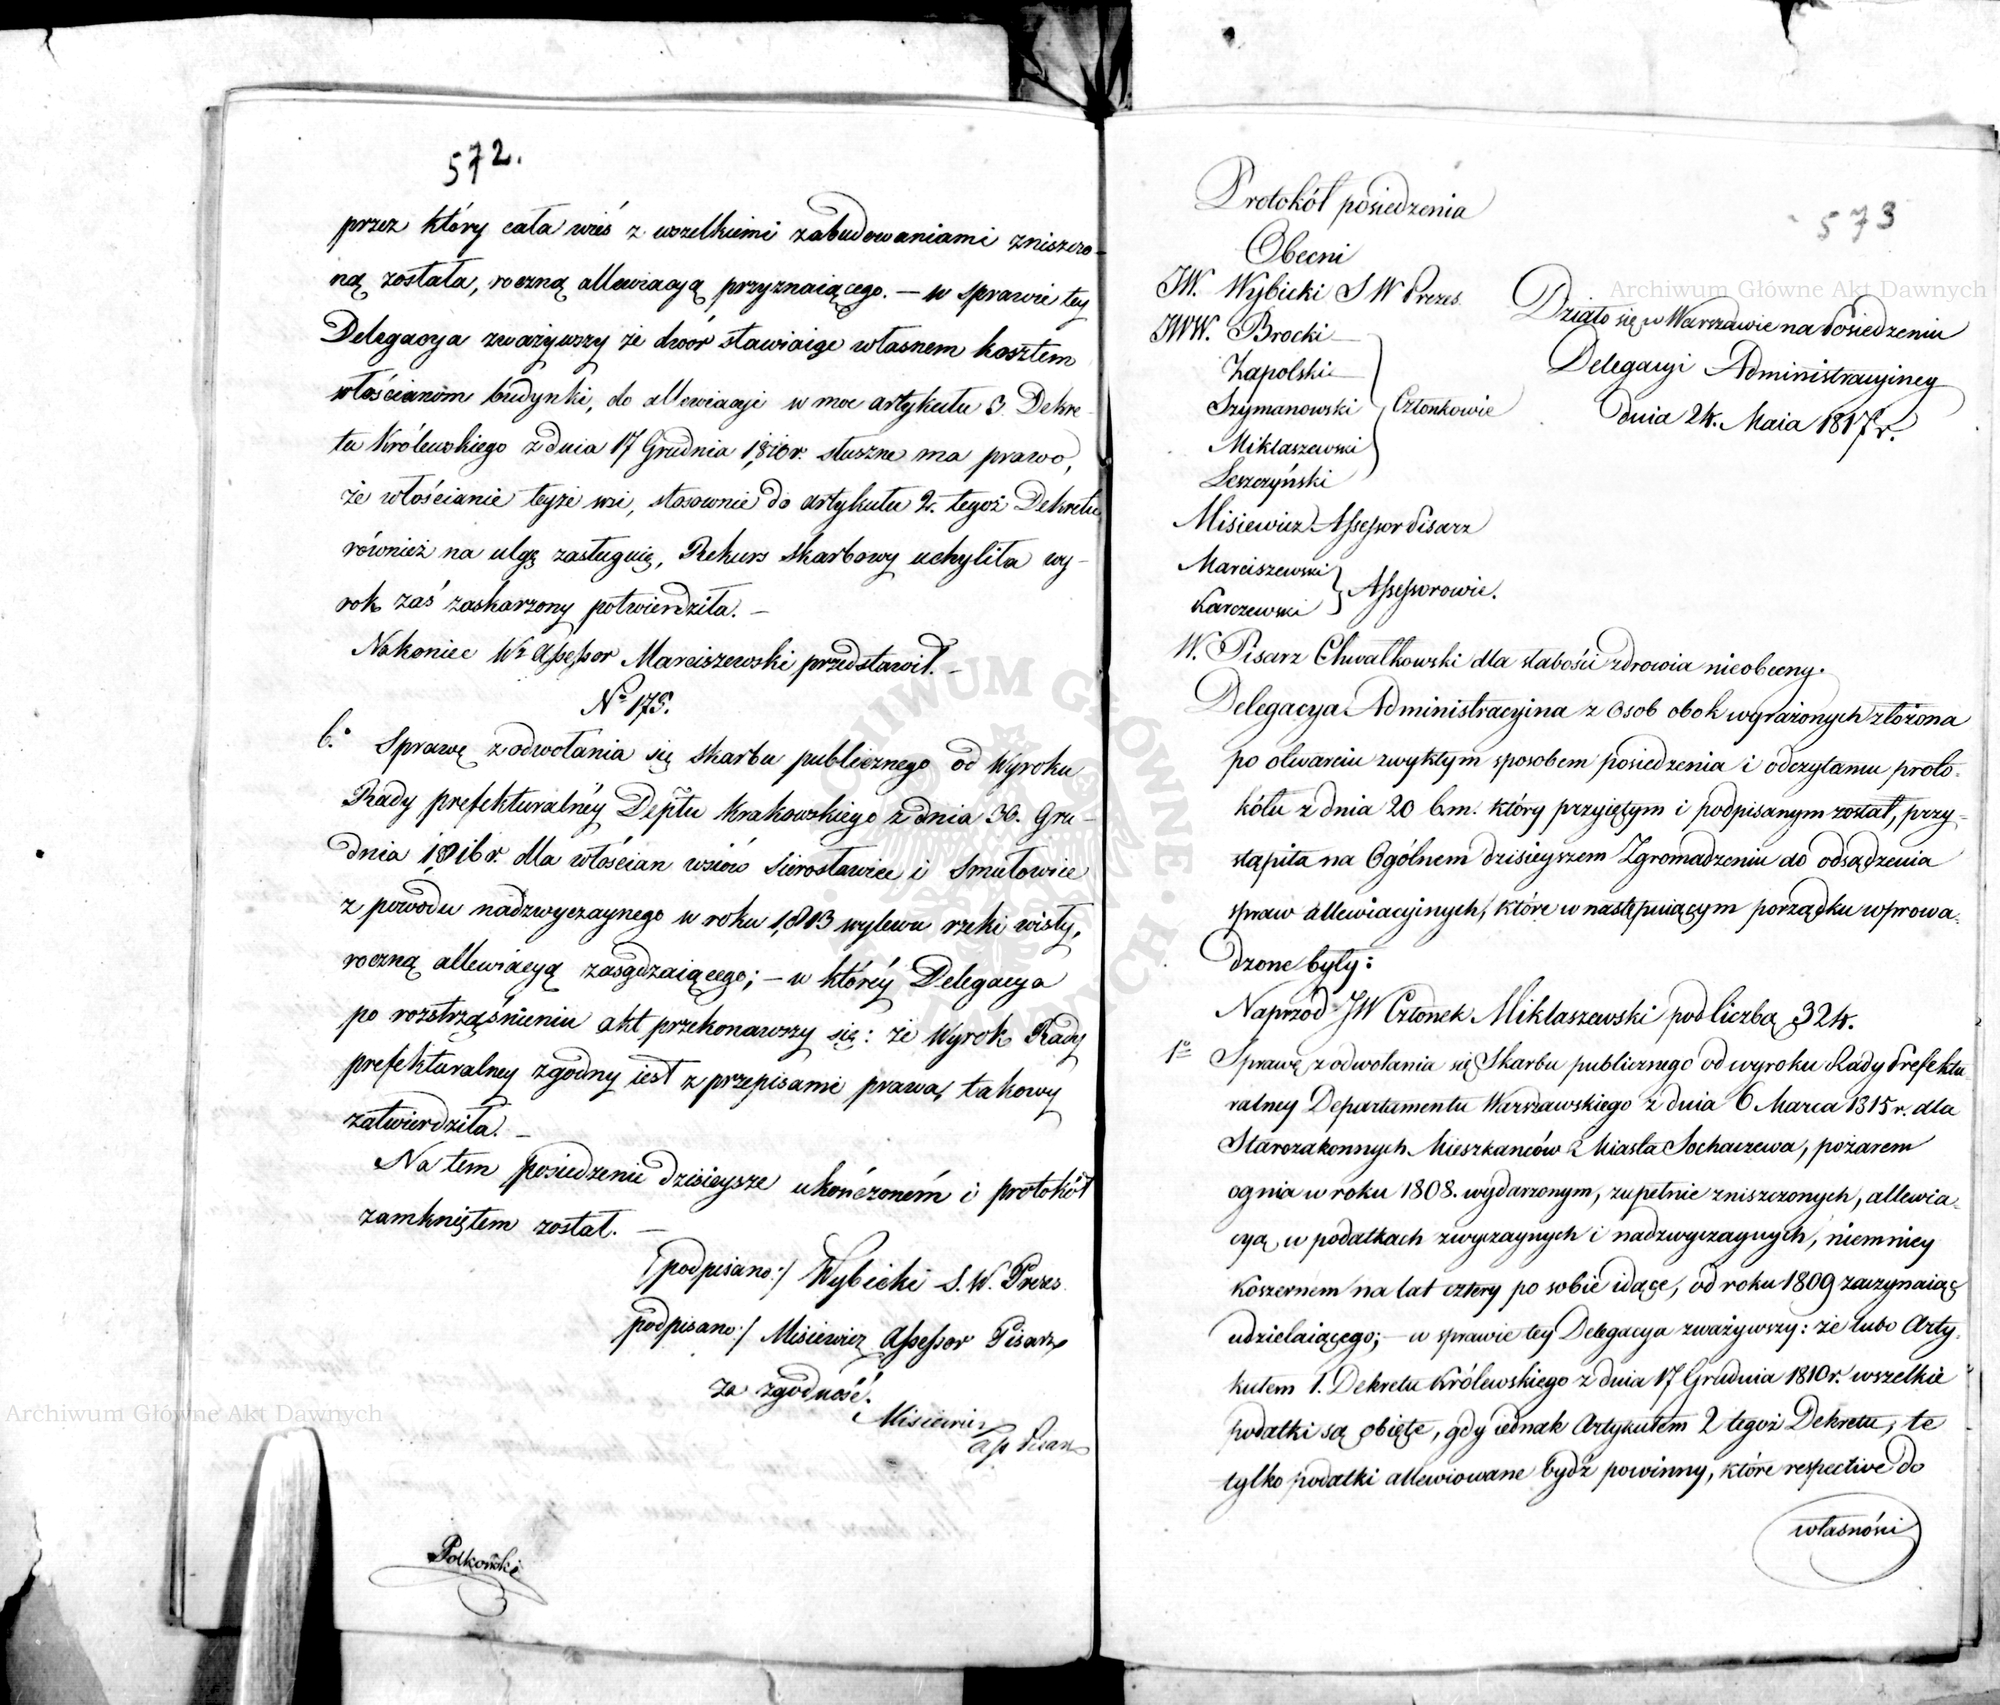 572.
przez który cała wieś z wszelkiemi zabudowaniami zniszczo-
ną została, roczną allewiacyą przyznaiącego. — w sprawie tey
Delegacya zważywszy że dwór stawiaiąc własnem kosztem
włościanom budynki, do allewiacyi w moc artykułu 3 Dekre-
tu Królewskiego z dnia 17 Grudnia 1810 r. słuszne ma prawo,
że włościanie teyże wsi, stosownie do artykułu 2. tegoż Dekretu
również na ulgę zasługuią, Rekurs skarbowy uchyliła wy-
rok zaś zaskarzony potwierdziła. —
Nakoniec Wr Assessor Marciszewski przedstawił. —
No 178.
6.o Sprawę z odwołania się skarbu publicznego od Wyroku
Rady prefekturalnéy Deptu Krakowskiego z dnia 30. Gru-
dnia 1816 r. dla włościan wsiów Sierosławice i Smiłowice
z powodu nadzwyczaynego w roku 1813 wylewu rzeki wisły,
roczną allewiacyą zasądzaiącego; — w któréy Delegacya
po roztrząśnieniu akt przekonawszy się: że Wyrok Rady
prefekturalney zgodny iest z przepisami prawa, takowy
zatwierdziła. —
Na tem posiedzenie dzisieysze ukończonem i protokół
zamkniętem został. —
/podpisano:/ Wybicki S. W. Prezes.
podpisano:/ Misiewicz Assessor Pisarz
za zgodność.
Misiewicz
Ass Pisarz
Polkowski
573
Protokół posiedzenia
Obecni
JW. Wybicki S W Prezes.
JWW. Brocki
Zapolski
Szymanowski Członkowie
Miklaszewski
Leszczyński
Misiewicz Assessor Pisarz
Marciszewski
Karczewski Assessorowie.
Działo się w Warszawie na Posiedzeniu
Delegacyi Administracyiney
dnia 24. Maia 1817 r.
W. Pisarz Chwałkowski dla słabości zdrowia nieobecny.
Delegacya Administracyina z osob obok wyrażonych złożona
po otwarciu zwykłym sposobem posiedzenia i odczytaniu proto-
kółu z dnia 20 b.m. który przyiętym i podpisanym został, przy-
stąpiła na Ogólnem dzisieyszem Zgromadzeniu do odsądzenia
spraw allewiacyinych, które w następuiącym porządku wprowa-
dzone były:
Naprzod JW Członek Miklaszewski pod liczbą 324.
1o Sprawę z odwołania się Skarbu publicznego od wyroku Rady Prefektu-
ralney Departamentu Warszawskiego z dnia 6 Marca 1815 r. dla
Starozakonnych Mieszkanców Miasta Sochaczewa, pożarem
ognia w roku 1808. wydarzonym, zupełnie zniszczonych, allewia-
cyą w podatkach zwyczaynych i nadzwyczaynych, niemniey
koszernem na lat cztery po sobie idące, od roku 1809 zaczynaiąc
udzielaiącego; — w sprawie tey Delegacya zważywszy: że lubo Arty-
kułem 1. Dekretu Królewskiego z dnia 17 Grudnia 1810 r. wszelkie
podatki są obięte, gdy iednak Artykułem 2 tegoż Dekretu, te
tylko podatki allewiowane bydź powinny, które respective do
własności
Archiwum Główne Akt Dawnych
Archiwum Główne Akt Dawnych
ARCHIWUM GŁÓWNE AKT DAWNYCH